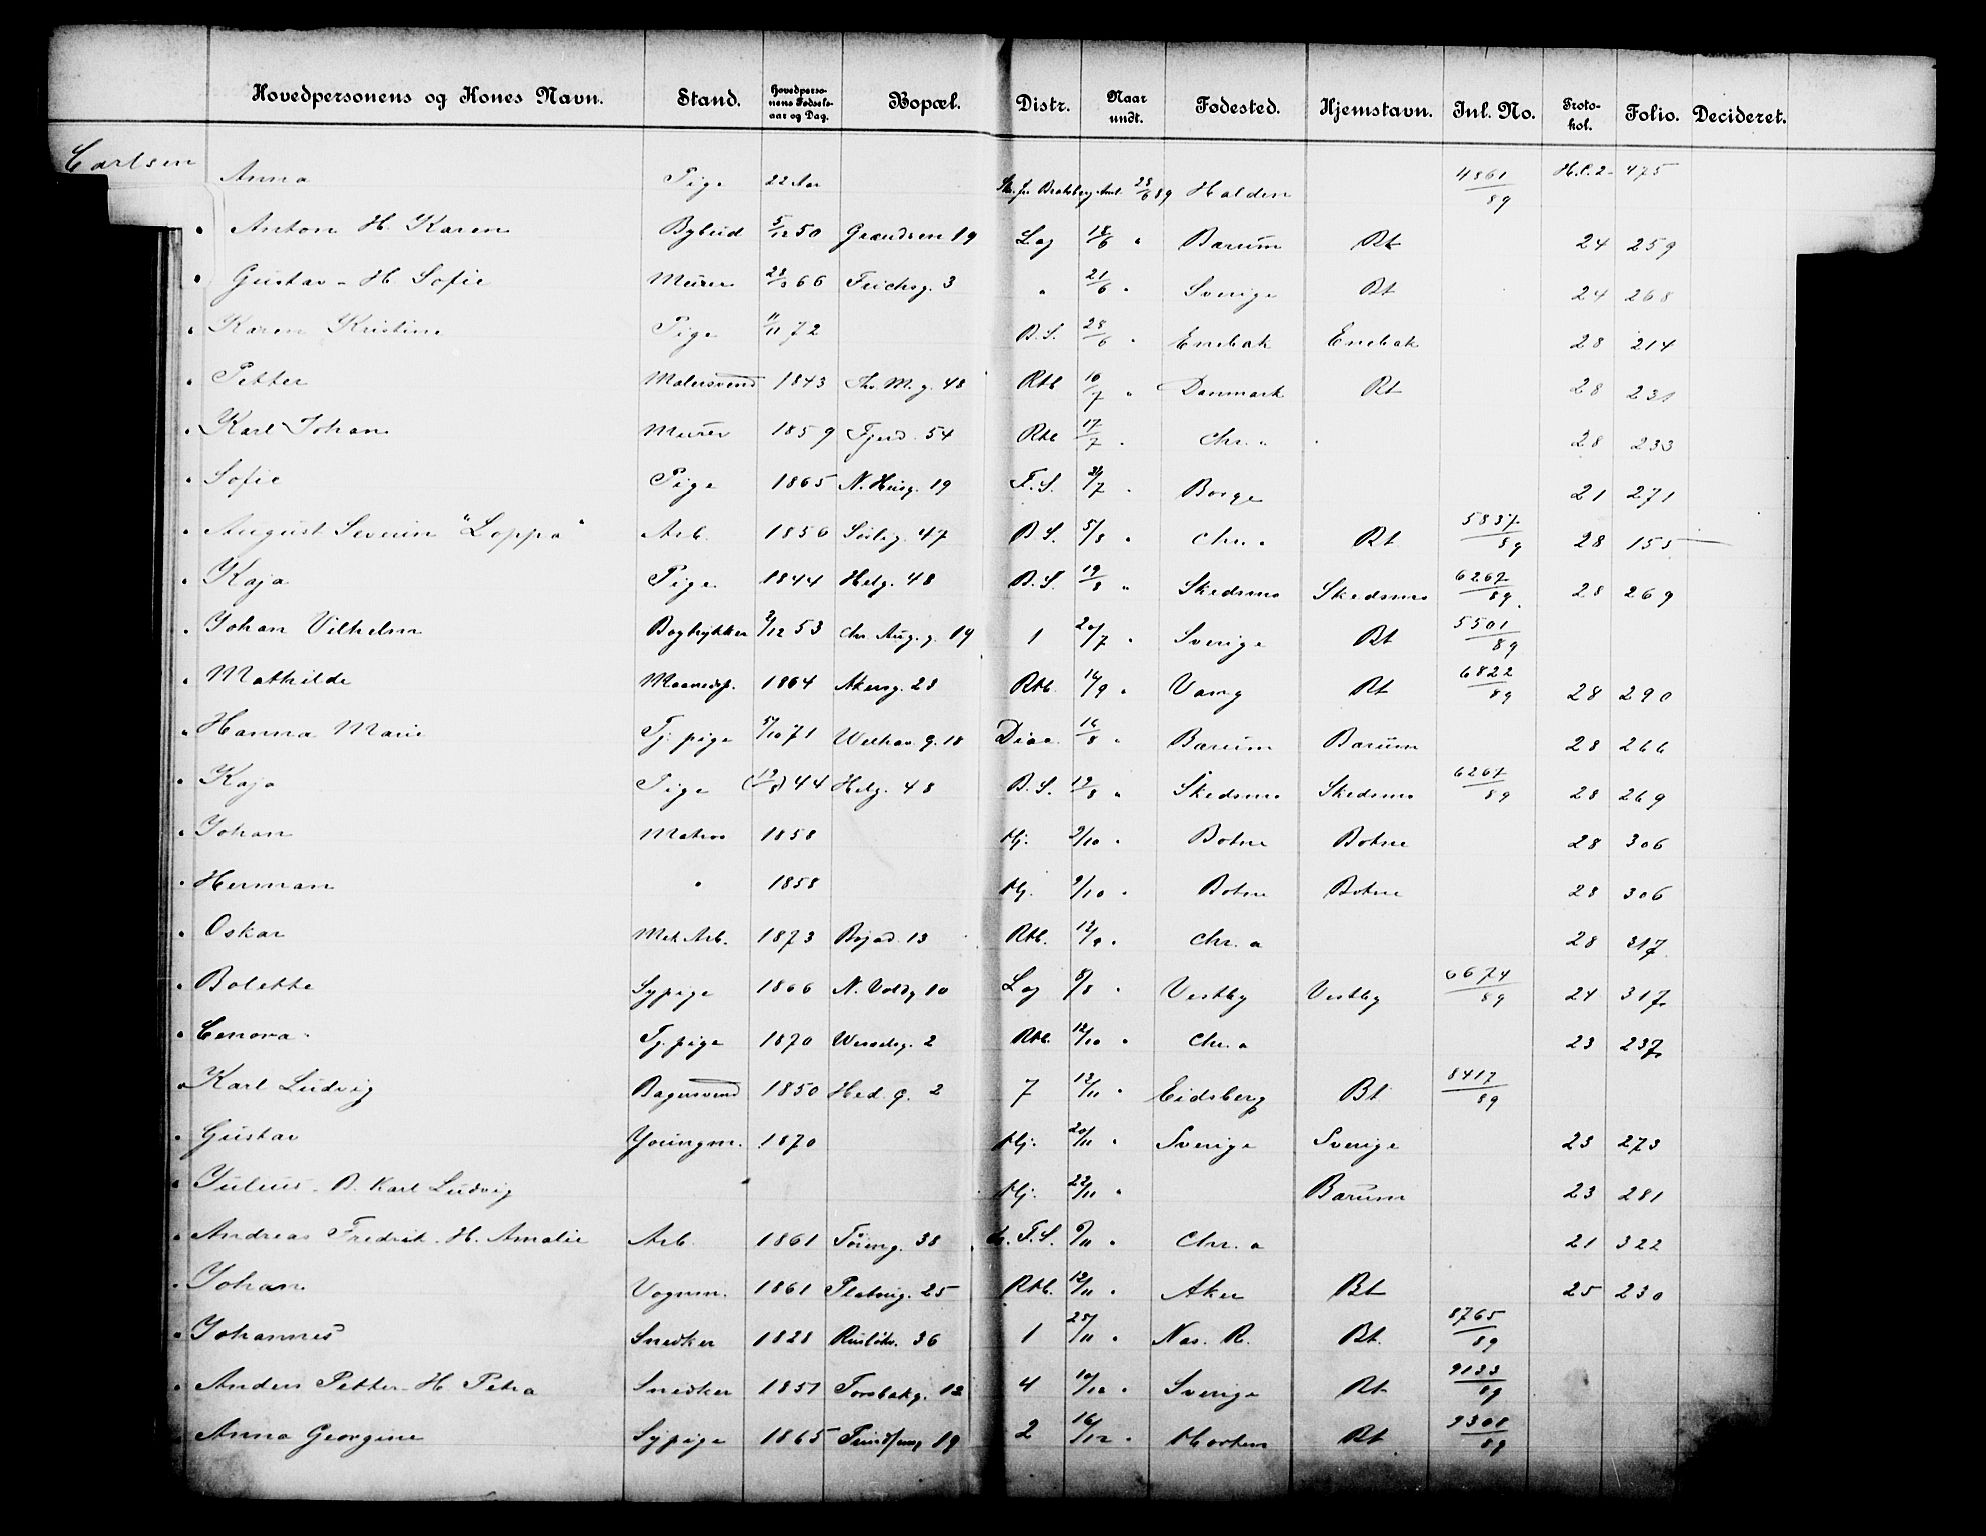 Hovedpersonens og Kones Navn. Stand. Hovedpersonens Fødselsaar og Dag. Bopæl. Distr. Naar undt. Fødested. Hjemstavn. Inl. No. Protokol. Folio. Decideret.
Carlsen Anna Pige 22 Aar Bratsberg Amt 28/6 89 Halden 4861/89 H.C.2. 475
" Anton H. Karen Bybud 5/12 50 Grændsen 19 Log 18/6 " Bærum Rt 24 259
" Gustav - H. Sofie Murer 66 3 " 21/6 " Sverige Rt 24 268
" Karen Kristine Pige 11/11 72 B.S. 28/6 " Enebak Enebak 28 214
" Petter Malersvend 1843 Th. M. g. 48 Rtb 10/7 " Danmark Rt 28 231
" Karl Johan Murer 1859 Fjerd. 54 Rtb 17/7 " Chr.a " 28 233
" Sofie Pige 1865 N. Husg. 19 F.S. /7 " Borge 21 271
" August Severin "Loppa" Arb. 1856 47 B.S. 5/8 " Chr.a Rt 5837/89 28 155
" Kaja Pige 1844 Helg. 48 B.S. 19/8 " Skedsmo Skedsmo 6267/89 28 269
" Johan Vilhelm Bogtrykker 2/12 53 Chr. Aug. g. 19 1 20/7 " Sverige Rt 5501/89
" Mathilde 1864 Akersg. 28 Rtb. 14/9 " Vang Rt 6822/89 28 290
" Hanna Marie Tj. pige 5/10 71 Welhav. g. 18 Diac. 14/8 " Bærum Bærum 28 266
" Kaja Pige (19/8) 44 Helg. 48 B.S. 19/8 " Skedsmo Skedsmo 6267/89 28 269
" Johan Matros 1858 Hj. 2/10 " Botne Botne 28 306
" Herman " 1858 Hj. 2/10 " Botne Botne 28 306
" Oskar Mek Arb. 1873 13 Rtb. 12/9 " Chr.a 28 317
" Bolette Sypige 1866 N. Voldg 10 Log 8/8 " Vestby Vestby 6674/89 24 317
" Tj. pige 1870 2 Rtb. 12/10 " Chr.a 23 237
" Karl Ludvig Bagersvend 1850 Hed. g. 2 7 12/11 " Eidsberg Bt 8417/89
" Gustav Youngm. 1870 Hj. 20/11 " Sverige Sverige 23 273
" Julius - B. Karl Ludvig " Hj. 22/11 " Bærum 23 281
" Andreas Fredrik - H. Amalie Arb. 1861 Töieng. 38 F.S. /11 " Chr.a 21 322
" Johan Vognm. 1861 25 Rtb. 12/11 " Aker Bt 25 230
" Johannes Snedker 1828 Rusløkv. 36 1 25/11 " Næs. R. Bt. 8765/89
" Anders Petter - H Petra Snedker 1851 12 4 10/12 " Sverige Rt 9133/89
" Anna Georgine Sypige 1865 19 2 16/12 " Horten Rt 9308/89